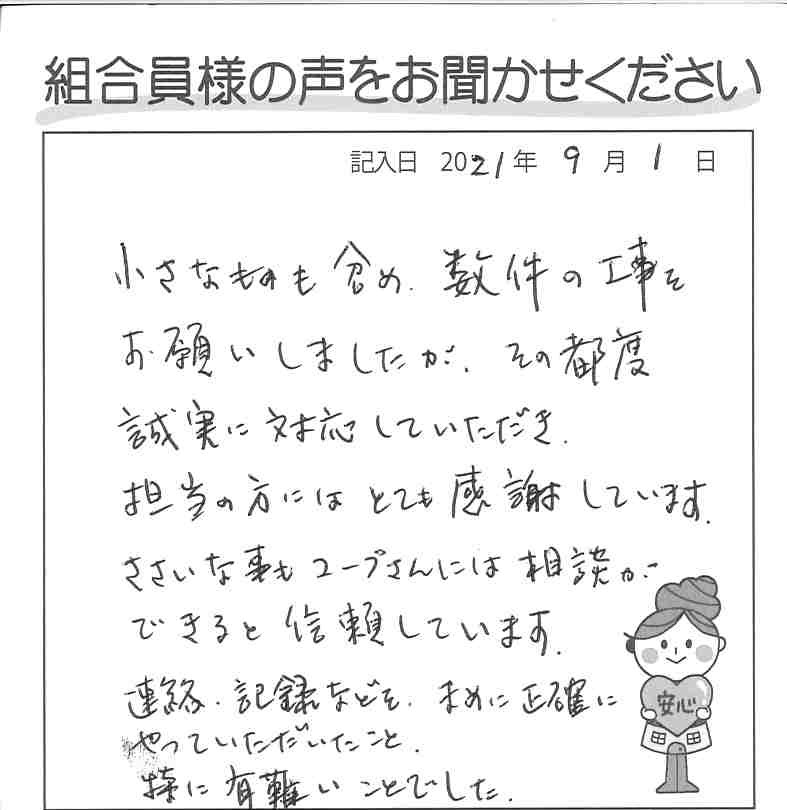 組合員様の声をお聞かせください
記入日 2021年 9月 1日
小さなものも含め、数件の工事を
お願いしましたが、その都度
誠実に対応していただき、
担当の方にはとても感謝しています。
ささいな事もコープさんには相談が
できると信頼しています。
連絡・記録などを、まめに正確に
やっていただいたこと、
特に有難いことでした。
安心